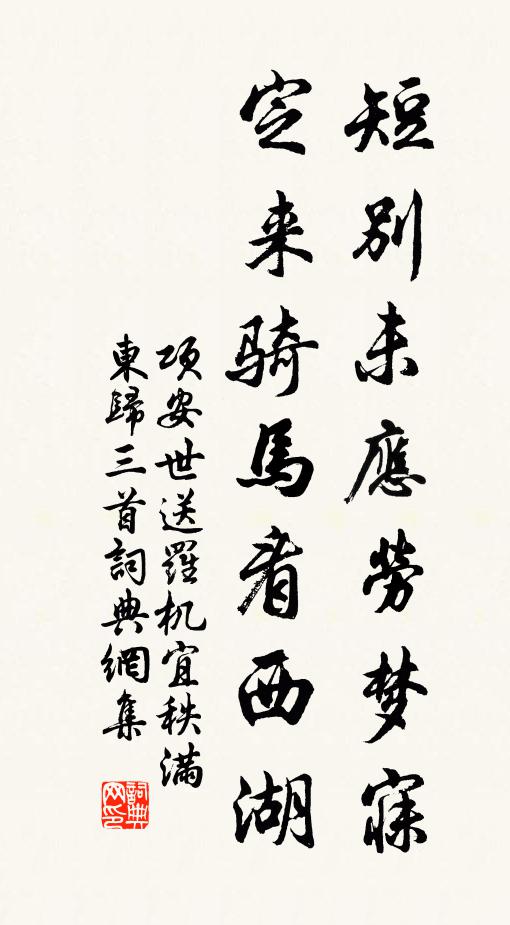 短别未應勞梦寐
定来騎馬看西湖
項安世送羅机宜秩滿
東歸三首詞典網集
詞典
网印